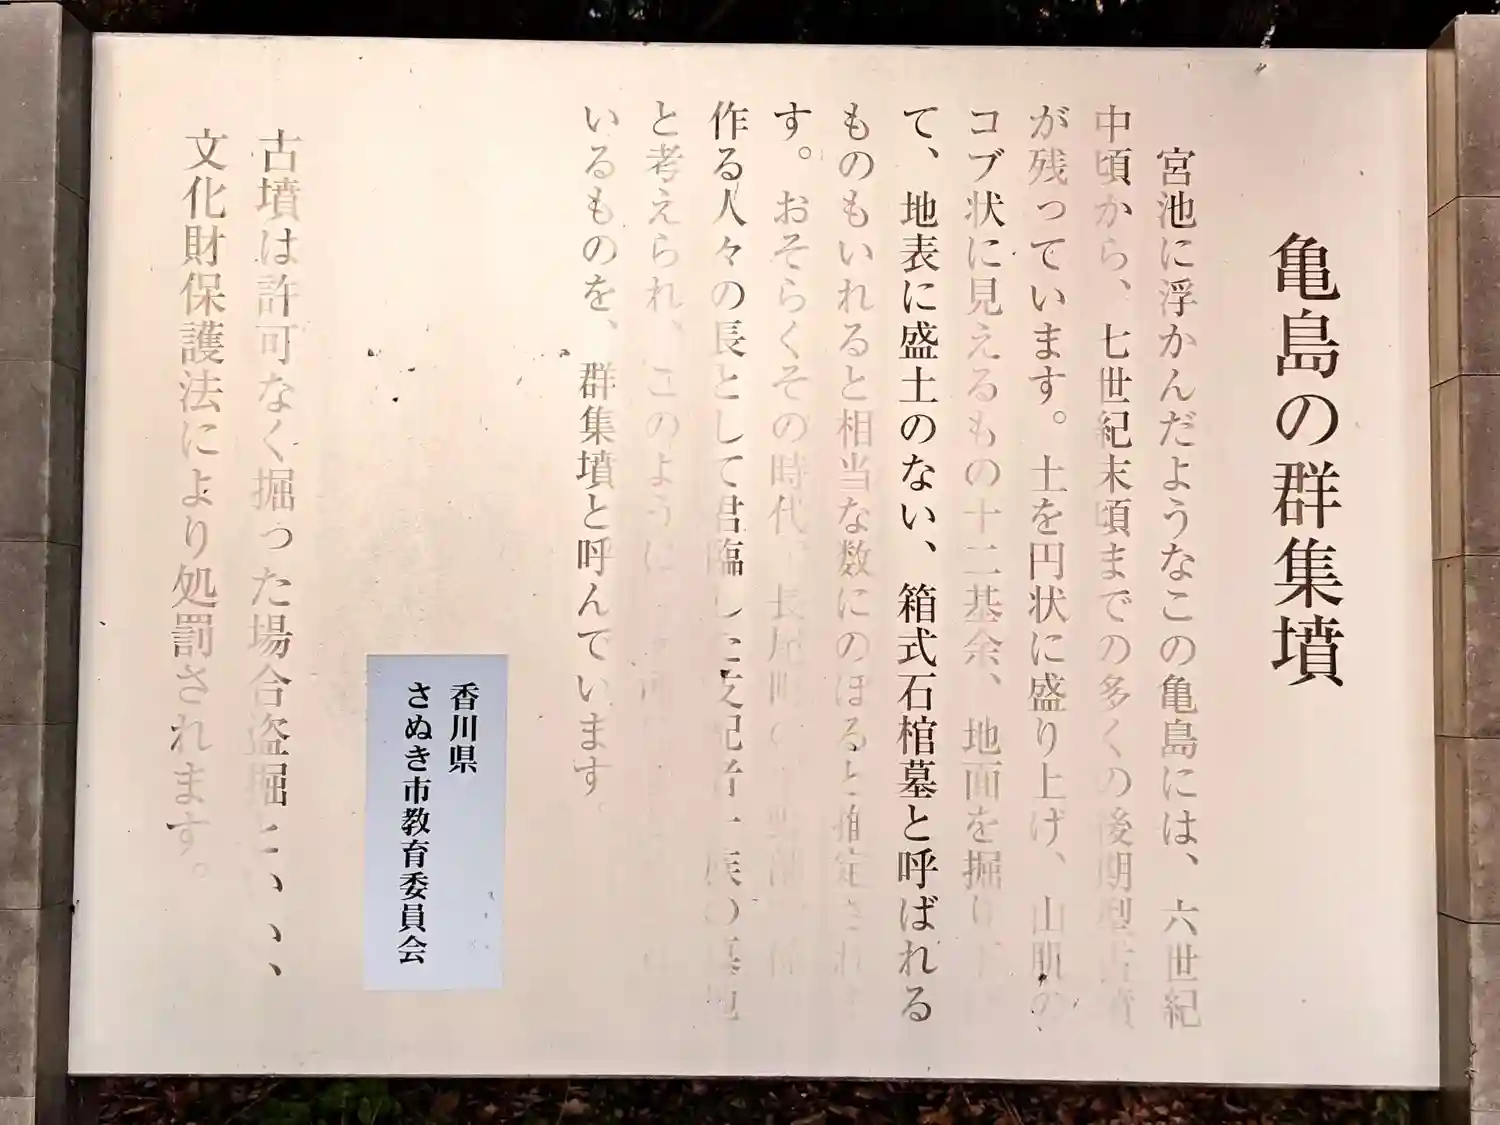 亀島の群集墳
宮池に浮かんだようなこの亀島には、六世紀
中頃から、七世紀末頃までの多くの後期型古墳
が残っています。土を円状に盛り上げ、山肌の
コブ状に見えるもの十二基余、地面を掘り下げ
て、地表に盛土のない、箱式石棺墓と呼ばれる
ものもいれると相当な数にのぼると推定されま
す。おそらくその時代、長尾町の
作る人々の長として君臨した支配者一族の墓地
と考えられ、このように
いるものを、群集墳と呼んでいます。
香川県
さぬき市教育委員会
古墳は許可なく掘った場合盗掘といい、
文化財保護法により処罰されます。